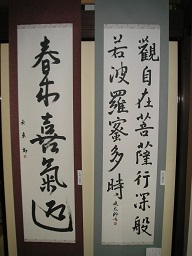 觀自在菩薩行深般
若波羅蜜多時
春來喜氣迎